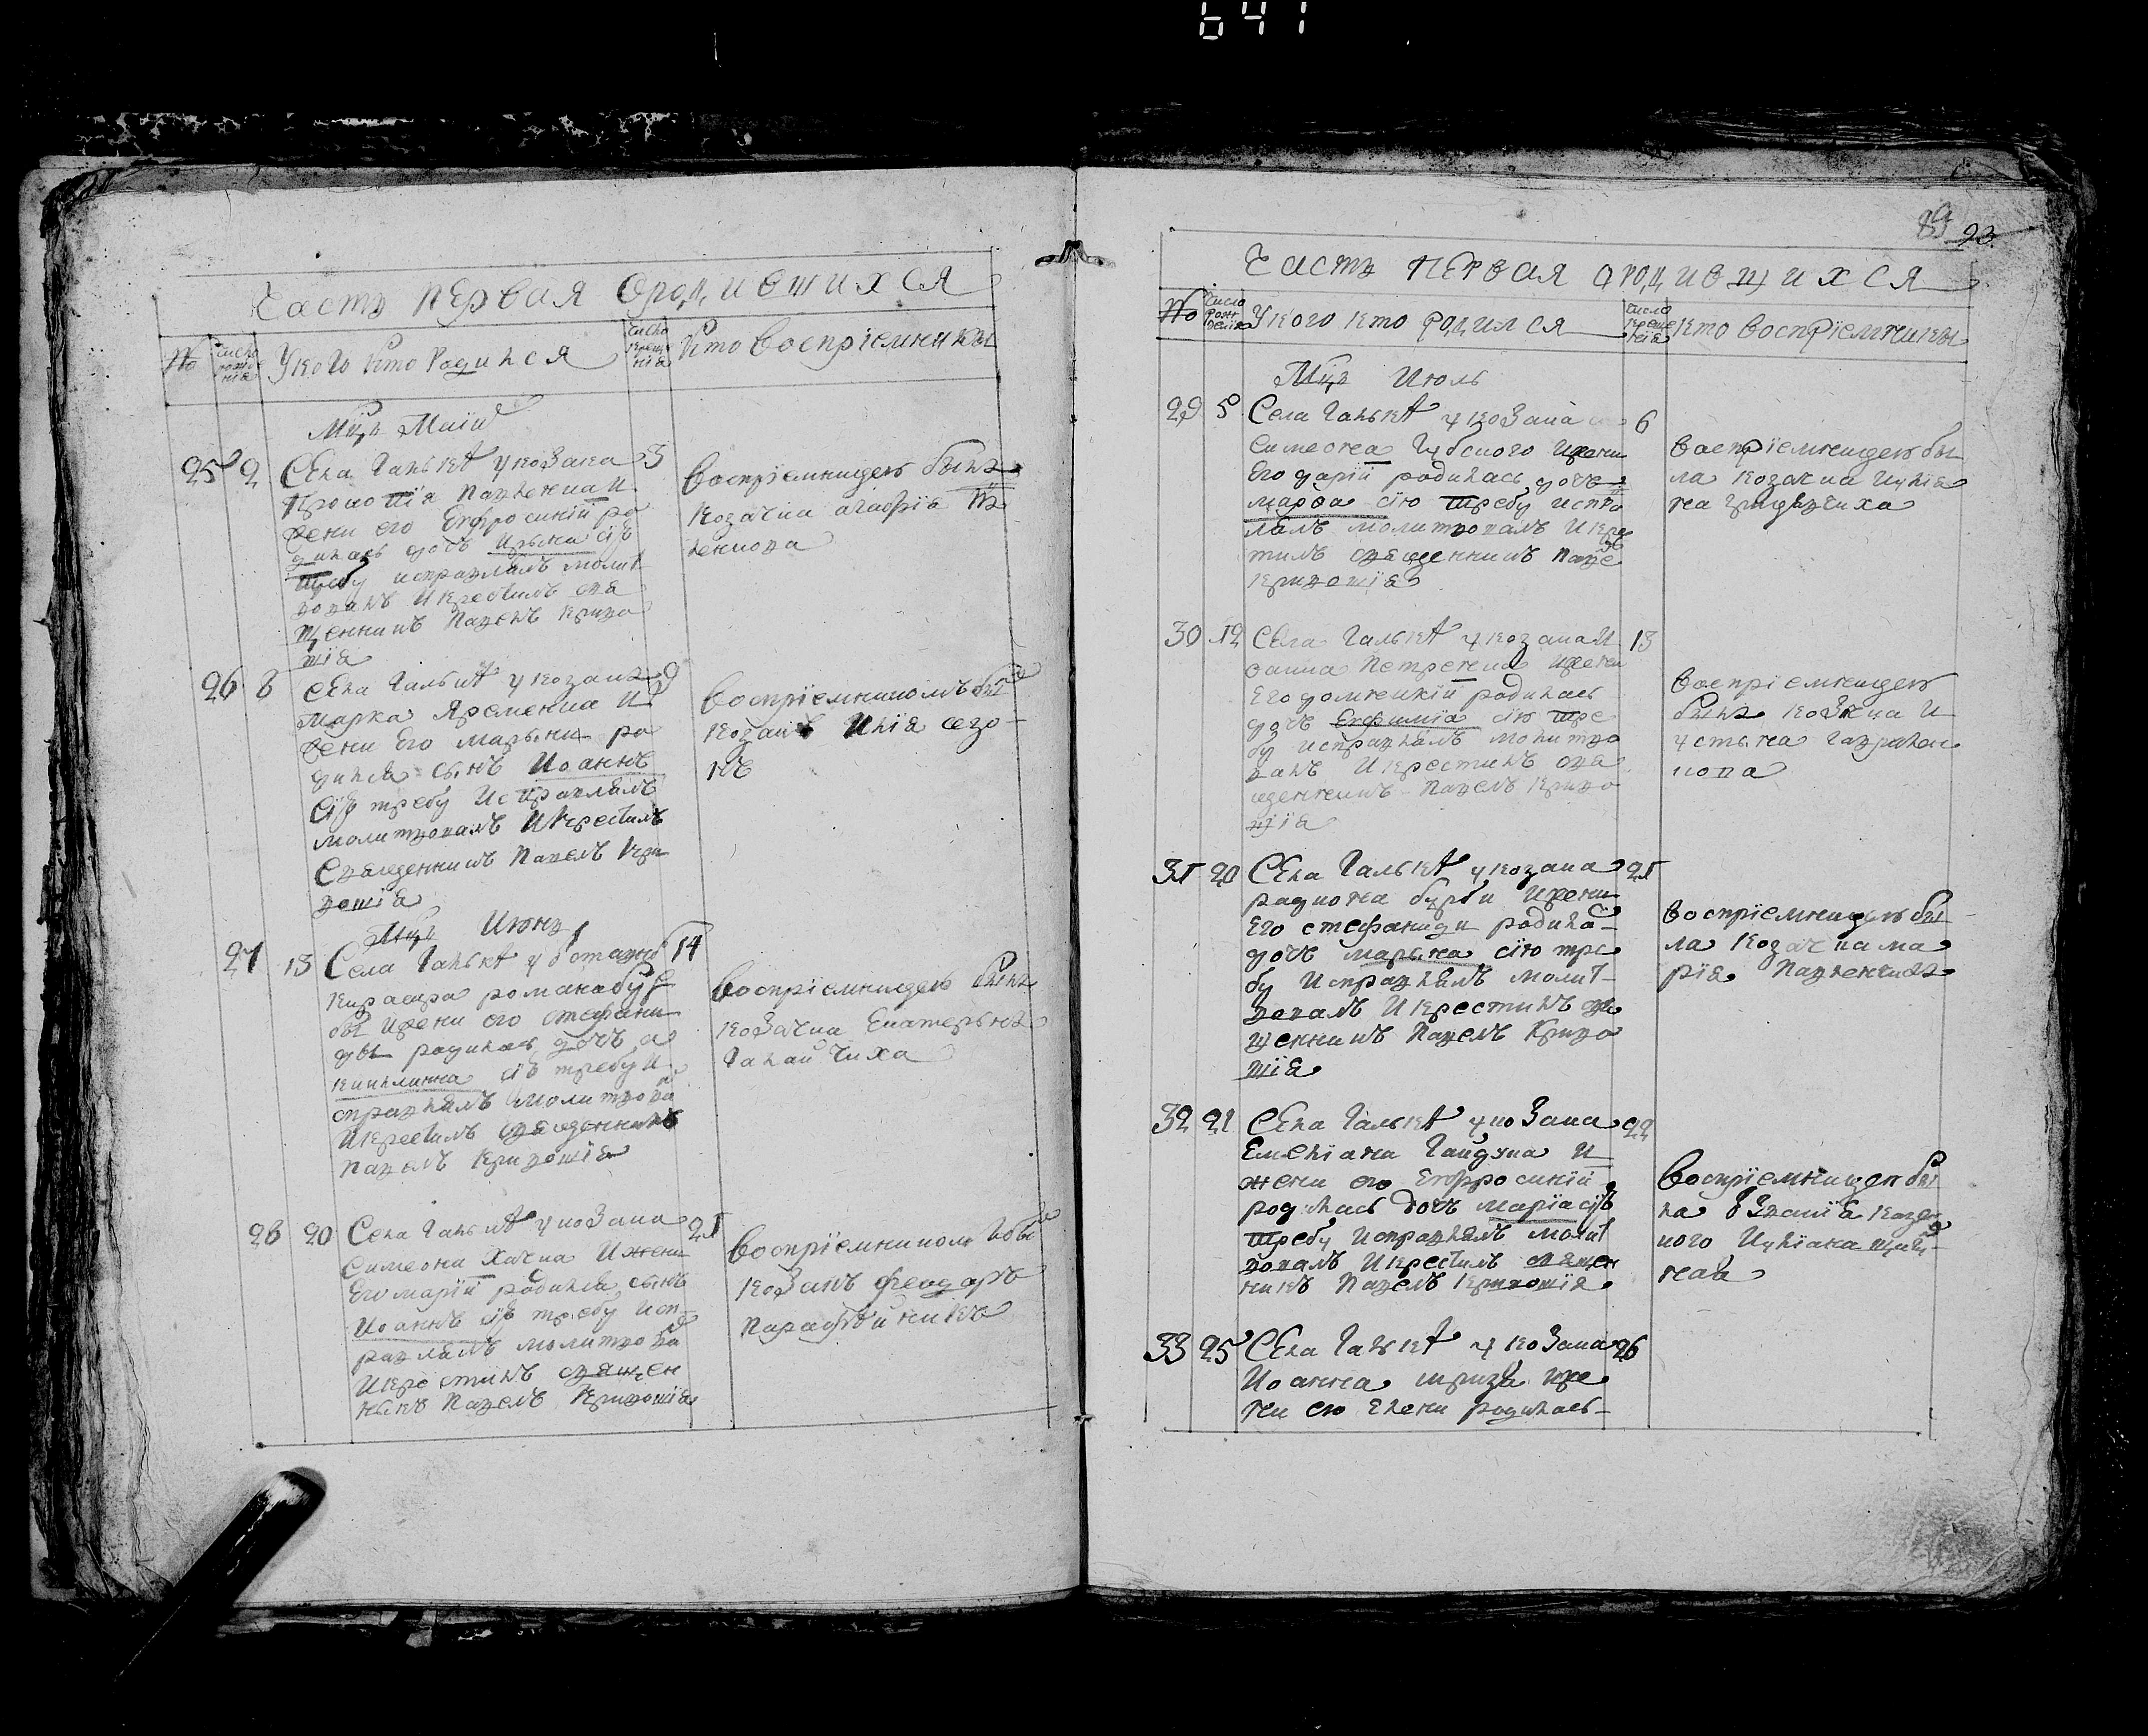 641
Часть первая ѡродившихся
№ число рожденія У кого кто родился число крещенія кто воспріемники
Мцъ Маій
25 2 Села Галькѣ у козака 3
Прокопія Павленка и
жени его Евфросиніи ро
дилась дочь Ирына сію
требу исправлялъ молит
вовалъ и крестилъ свя
щенникъ Павелъ Криво
шія
воспріемницею была
козачка Агафія
26 8 Села Галькѣ у козака 9
Марка Яременка и
жени его Марыни ро
дился сынъ Иоаннъ
сію требу исправлялъ
молитвовалъ и крестилъ
священникъ Павелъ Кри
вошія
воспріемникомъ былъ
козакъ Илія
Мцъ Июнь
27 13 Села Галькѣ у 14
Романа
жени его Стефани
ды родилась дочь а
килина сію требу и
справлялъ молитвова
и крестилъ священникъ
Павелъ Кривошія
воспріемницею была
козачка Екатерына
Галайчиха
28 20 Села Галькѣ у козака 21
Симеона и жени
его Маріи родился сынъ
Иоаннъ сію требу исп
равлялъ молитвова
и крестилъ священ
ныкъ Павелъ Кривошія
воспріемникомъ
козакъ Феодоръ
89 93
Часть первая ѡродившихся
№ число рожденія У кого кто родился число крещенія кто воспріемники
Мцъ Июль
29 5 Села Галькѣ у козака 6
Симеона Губского и жени
его Дарій родилась дочь
Марфа сію требу испра
влялъ молитвовалъ и кре
тилъ священникъ Паве
Кривошія
воспріемницею бы
ла козачка Иулія
на
30 12 Села Галькѣ у козака И 13
оанна Петренка и жени
его Домникій родилась
дочь Евфимія сію тре
бу исправлялъ молитво
валъ и крестилъ свя
щенникъ Павелъ Криво
шія
воспріемницею
была козачка И
устына
31 20 Села Галькѣ у козака 21
Радиона Бурби и жени
его Стефаниди родила
дочь Марына сію тре
бу исправлялъ молит
вовалъ и крестилъ свя
щенникъ Павелъ Криво
шія
воспріемницею бы
ла козачка Ма
рія
32 21 Села Галькѣ у козака 22
Емеліана Гайдука и
жени его Евфросиній
родилась дочь Марія сію
требу исправлялъ молит
вовалъ и крестилъ священ
никъ Павелъ Кривошія
воспріемницею бы
ла
33 25 Села Галькѣ у козака 26
Иоанна и же
ни его Елени родилась